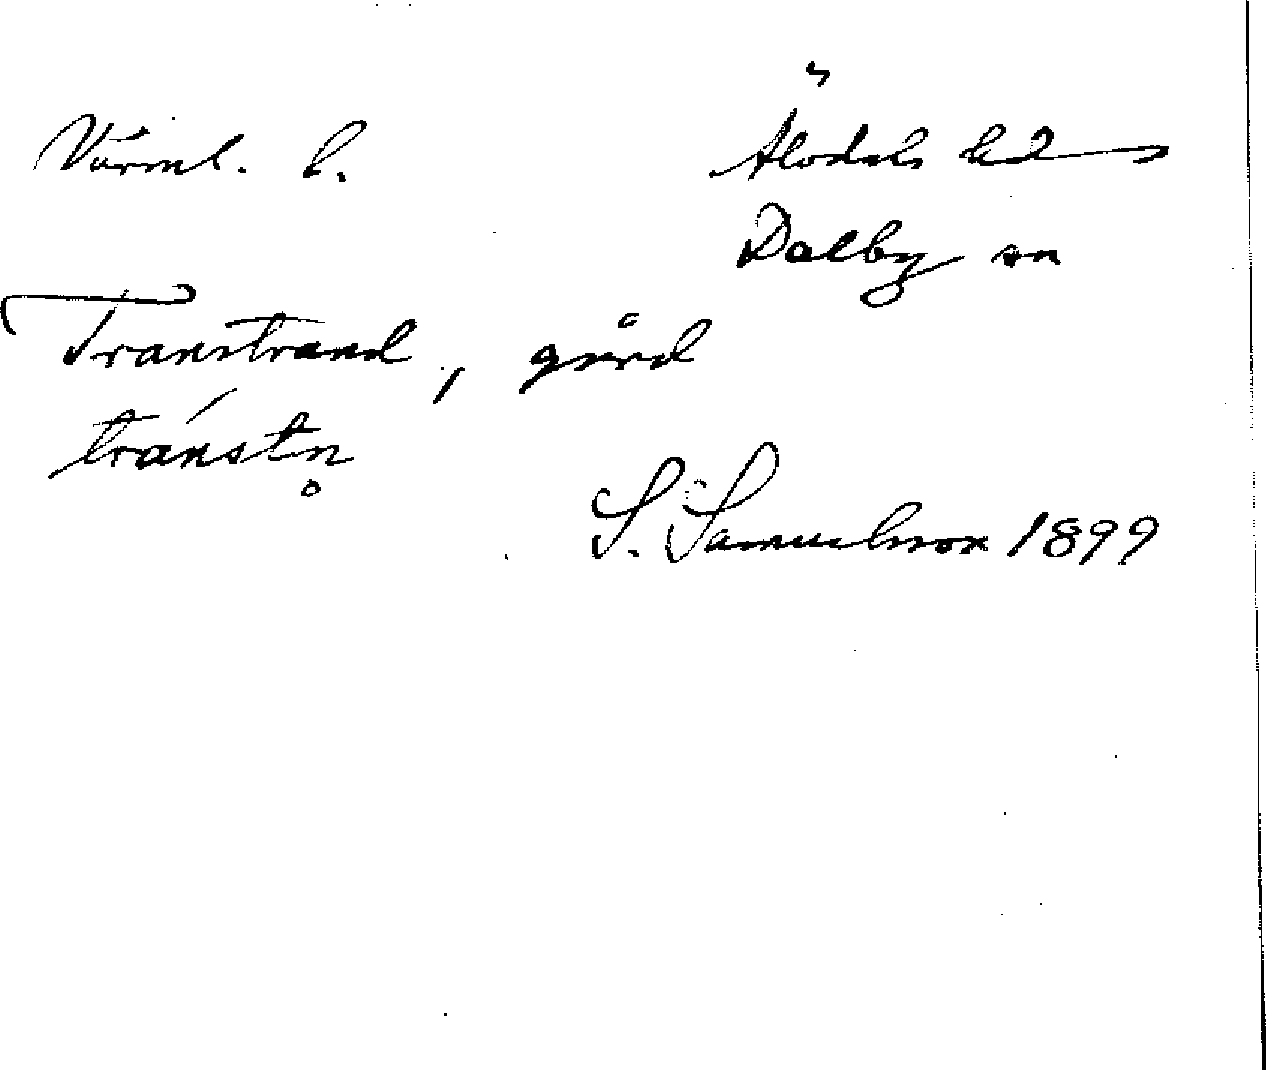 Värml. l.
Älvdals hd
Dalby sn
Transtrand, gård
tránstn̥
S. Samuelsson 1899